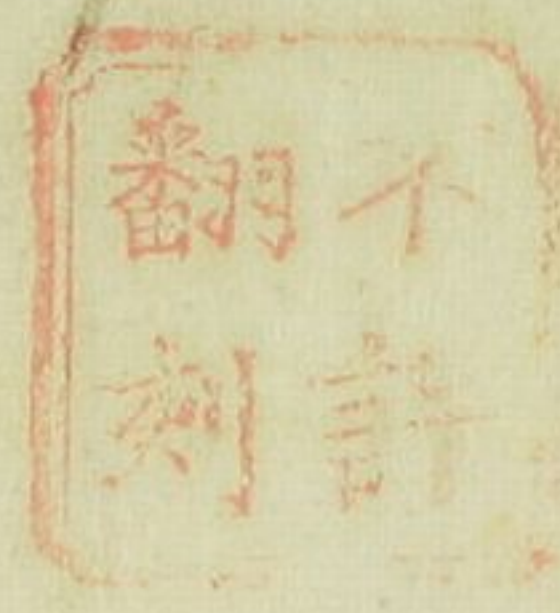 不許
翻刻